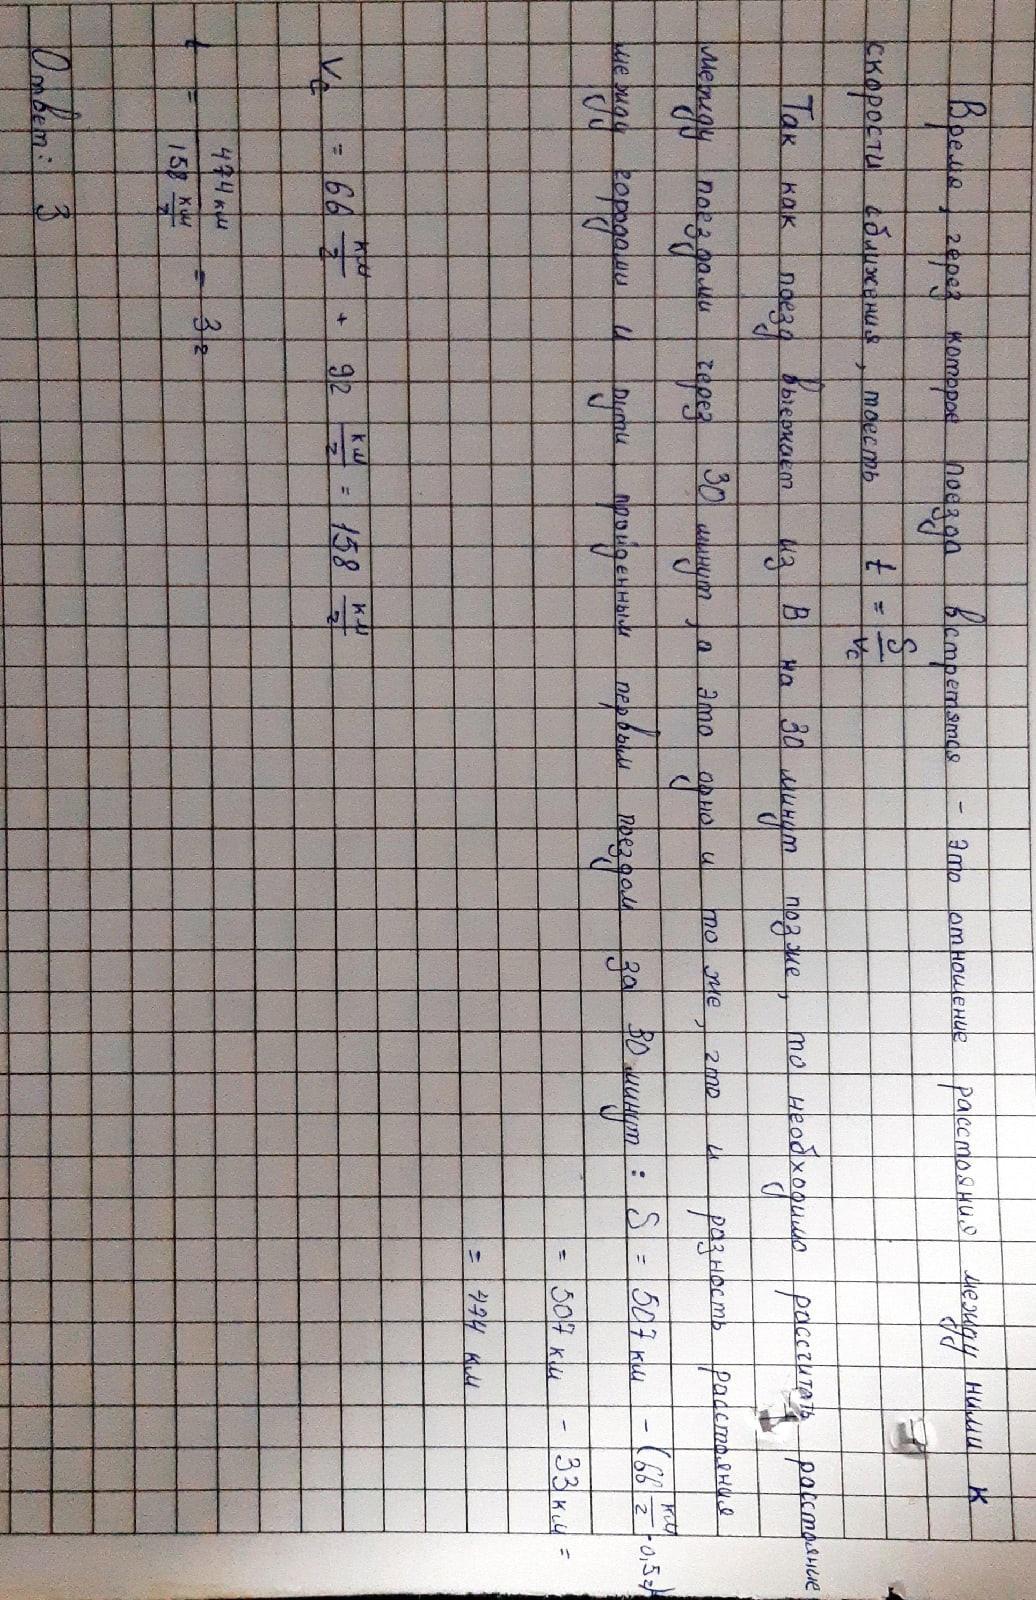 Время, через которое поезда встретятся - это отношение расстояния между ними к
скорости сближения, тоесть t = S/vc
Так как поезд выезжает из B на 30 минут позже, то необходимо рассчитать расстояние
между поездами через 30 минут, а это одно и то же, что и разность расстояния
между городами и пути пройденным первым поездом за 30 минут: S = 507 км - (66 км/г · 0,5 г) =
= 507 км - 33 км =
= 474 км
Vc = 66 км/г + 92 км/г = 158 км/г
t = 474 км / 158 км/г = 3 г
Ответ: 3